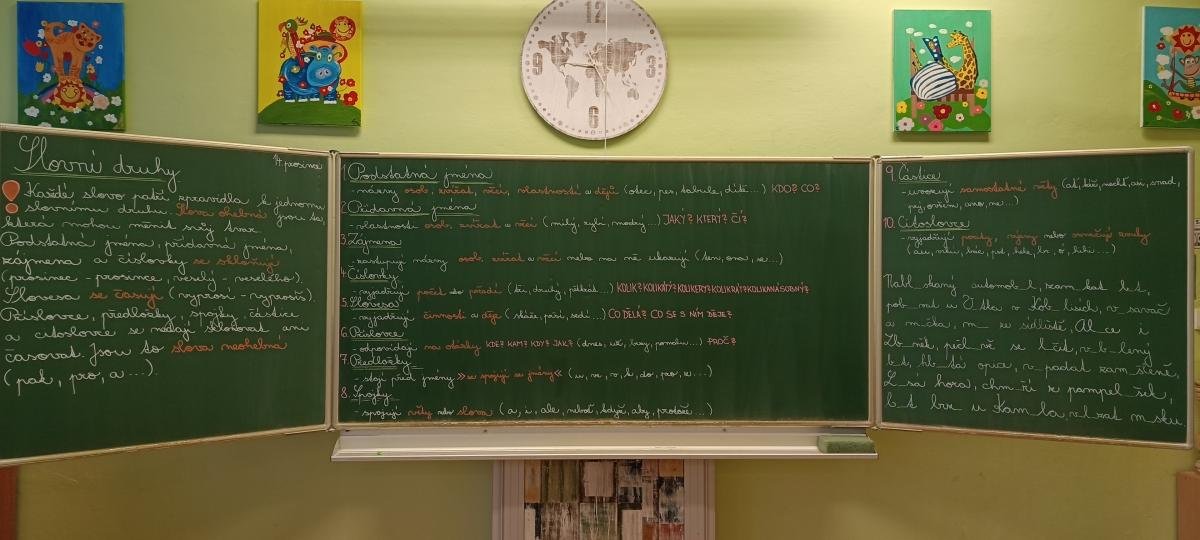 12
9 3
6
Slovní druhy
14. prosince
Každé slovo patří zpravidla k jednomu
slovnímu druhu. Slova ohebná jsou ta,
která mohou měnit svůj tvar.
Podstatná jména, přídavná jména,
zájmena a číslovky se skloňují
(prosinec - prosince, veselý - veselého).
Slovesa se časují (vyprosí - vyprosíš).
Příslovce, předložky, spojky, částice
a citoslovce se nedají skloňovat ani
časovat. Jsou to slova neohebná
(pak, pro, a ...).
1. Podstatná jména
- názvy osob, zvířat, věcí, vlastností a dějů (otec, pes, tabule, dítě...) KDO? CO?
2. Přídavná jména
- vlastnosti osob, zvířat a věcí (milý, rybí, modrý...) JAKÝ? KTERÝ? ČÍ?
3. Zájmena
- zastupují názvy osob, zvířat a věcí nebo na ně ukazují (ten, ona, se...)
4. Číslovky
- vyjadřují počet nebo pořadí (tři, druhý, pětkrát...) KOLIK? KOLIKÁTÝ? KOLIKERÝ? KOLIKRÁT? KOLIKANÁSOBNÝ?
5. Slovesa
- vyjadřují činnosti a děje (skáče, prší, sedí...) CO DĚLÁ? CO SE S NÍM DĚJE?
6. Příslovce
- odpovídají na otázky KDE? KAM? KDY? JAK? (dnes, brzy, pomalu...) PROČ?
7. Předložky
- stojí před jmény »se spojují se jmény« (u, ve, v, k, do, pro, z...)
8. Spojky
- spojují věty nebo slova (a, i, ale, neboť, když, aby, protože...)
9. Částice
- uvozují samostatné věty (ať, kéž, nechť, což, snad,
ano, ne...)
10. Citoslovce
- vyjadřují pocity, nebo označují zvuky
Nabl_skaný automob_l, b_t,
pob_mat v Kob_lisích, v_savač
a m_čka, m_ se sídliště, a i
Zb_něk, v_b_lený
b_t, hb_tá opice, v_padat zam_šleně,
L_sá hora, chm_ří se pampel_šek,
b_t v Kam_la, v_lézat m_sku.